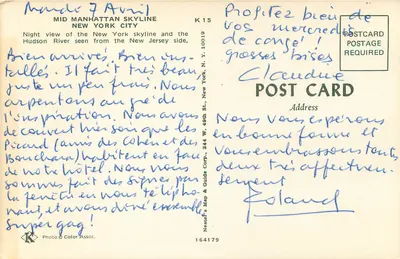 Mardi 7 Avril
MID MANHATTAN SKYLINE
NEW YORK CITY
K 15
Night view of the New York skyline and the
Hudson River seen from the New Jersey side,
Bien arrivés. Bien ins-
tallés. Il fait très beau
juste un peu frais. Nous
arpentons au gré de
l'inspiration. Nous avons
découvert hier soir que les
Picard (amis des Cohen et des
Bouchara) habitent en face
de notre hôtel. Nous nous
sommes fait des signes par
la fenêtre en nous télépho-
nant, et avons dîné ensemble
Super gag!
K
Photo © Color Assoc.
Nester's Map & Guide Corp., 244 W. 49th St., New York, N.Y. 10019
164179
Profitez bien de
vos mercredis
de congé!
grosses bises
Claudine
POSTCARD
POSTAGE
REQUIRED
POST CARD
Address
Nous vous espérons
en bonne forme et
vous embrassons tous
deux très affectueu-
sement
Roland